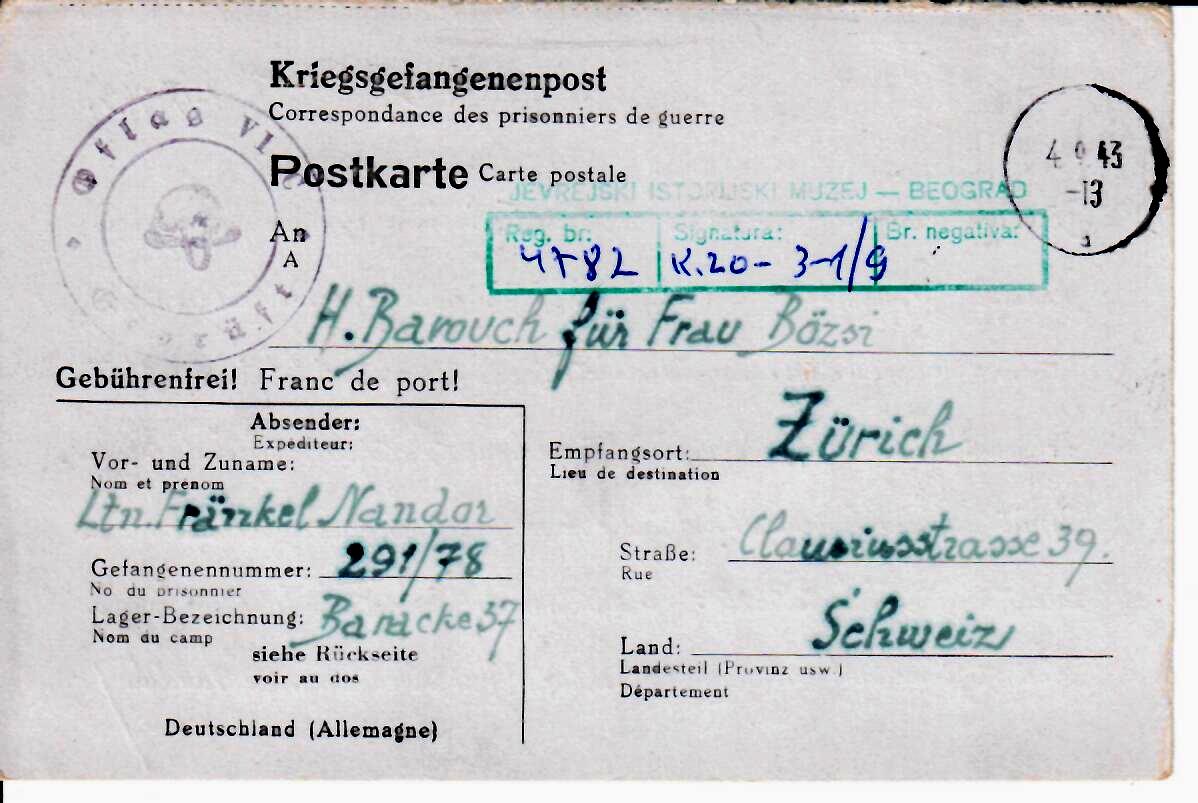 Kriegsgefangenenpost
Correspondance des prisonniers de guerre
Postkarte Carte postale
Oflag VI
4 9 43
-13
JEVREJSKI ISTORIJSKI MUZEJ — BEOGRAD
Reg. br: Signatura: Br. negativa:
4782 K.20-3-1/9
An
A
H. Barouch für Frau Bözsi
Gebührenfrei! Franc de port!
Absender:
Expéditeur:
Vor- und Zuname:
Nom et prenom
Ltn. Fränkel Nandor
Gefangenennummer: 291/78
No du prisonnier
Lager-Bezeichnung: Baracke 37
Nom du camp
siehe Rückseite
voir au dos
Deutschland (Allemagne)
Empfangsort: Zürich
Lieu de destination
Straße: Clausiusstrasse 39.
Rue
Land: Schweiz
Landesteil (Provinz usw.)
Département